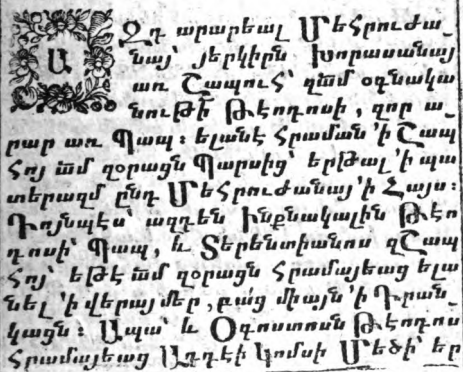 ԱԶդ արարեալ Մեհրուժա
նայ՝ յերկիրն Խորասանայ
առ Շապուհ՝ զա՟մ օգնակա
նութի՟ Թէոդոսի, զոր ա
րար առ Պապ ։ ելանէ հրաման ՚ի Շապ
հոյ ա՟մ զօրացն Պարսից՝ երթալ ՚ի պա
տերազմ ընդ Մեհրուժանայ ՚ի Հայս։
Դոյնպէս՝ ազդեն Ինքնակալին Թէո
դոսի՝ Պապ, և Տերենտիանոս զՇապ
հոյ՝ եթէ ա՟մ զօրացն հրամայեաց ելա
նել ՚ի վերայ մեր, բա՟ց միայն ՚ի Դրան
կացն ։ Ապա՝ և Օգոստոսն Թէոդոս
հրամայեաց Աղդէի կոմսի Մեծի՝ եր